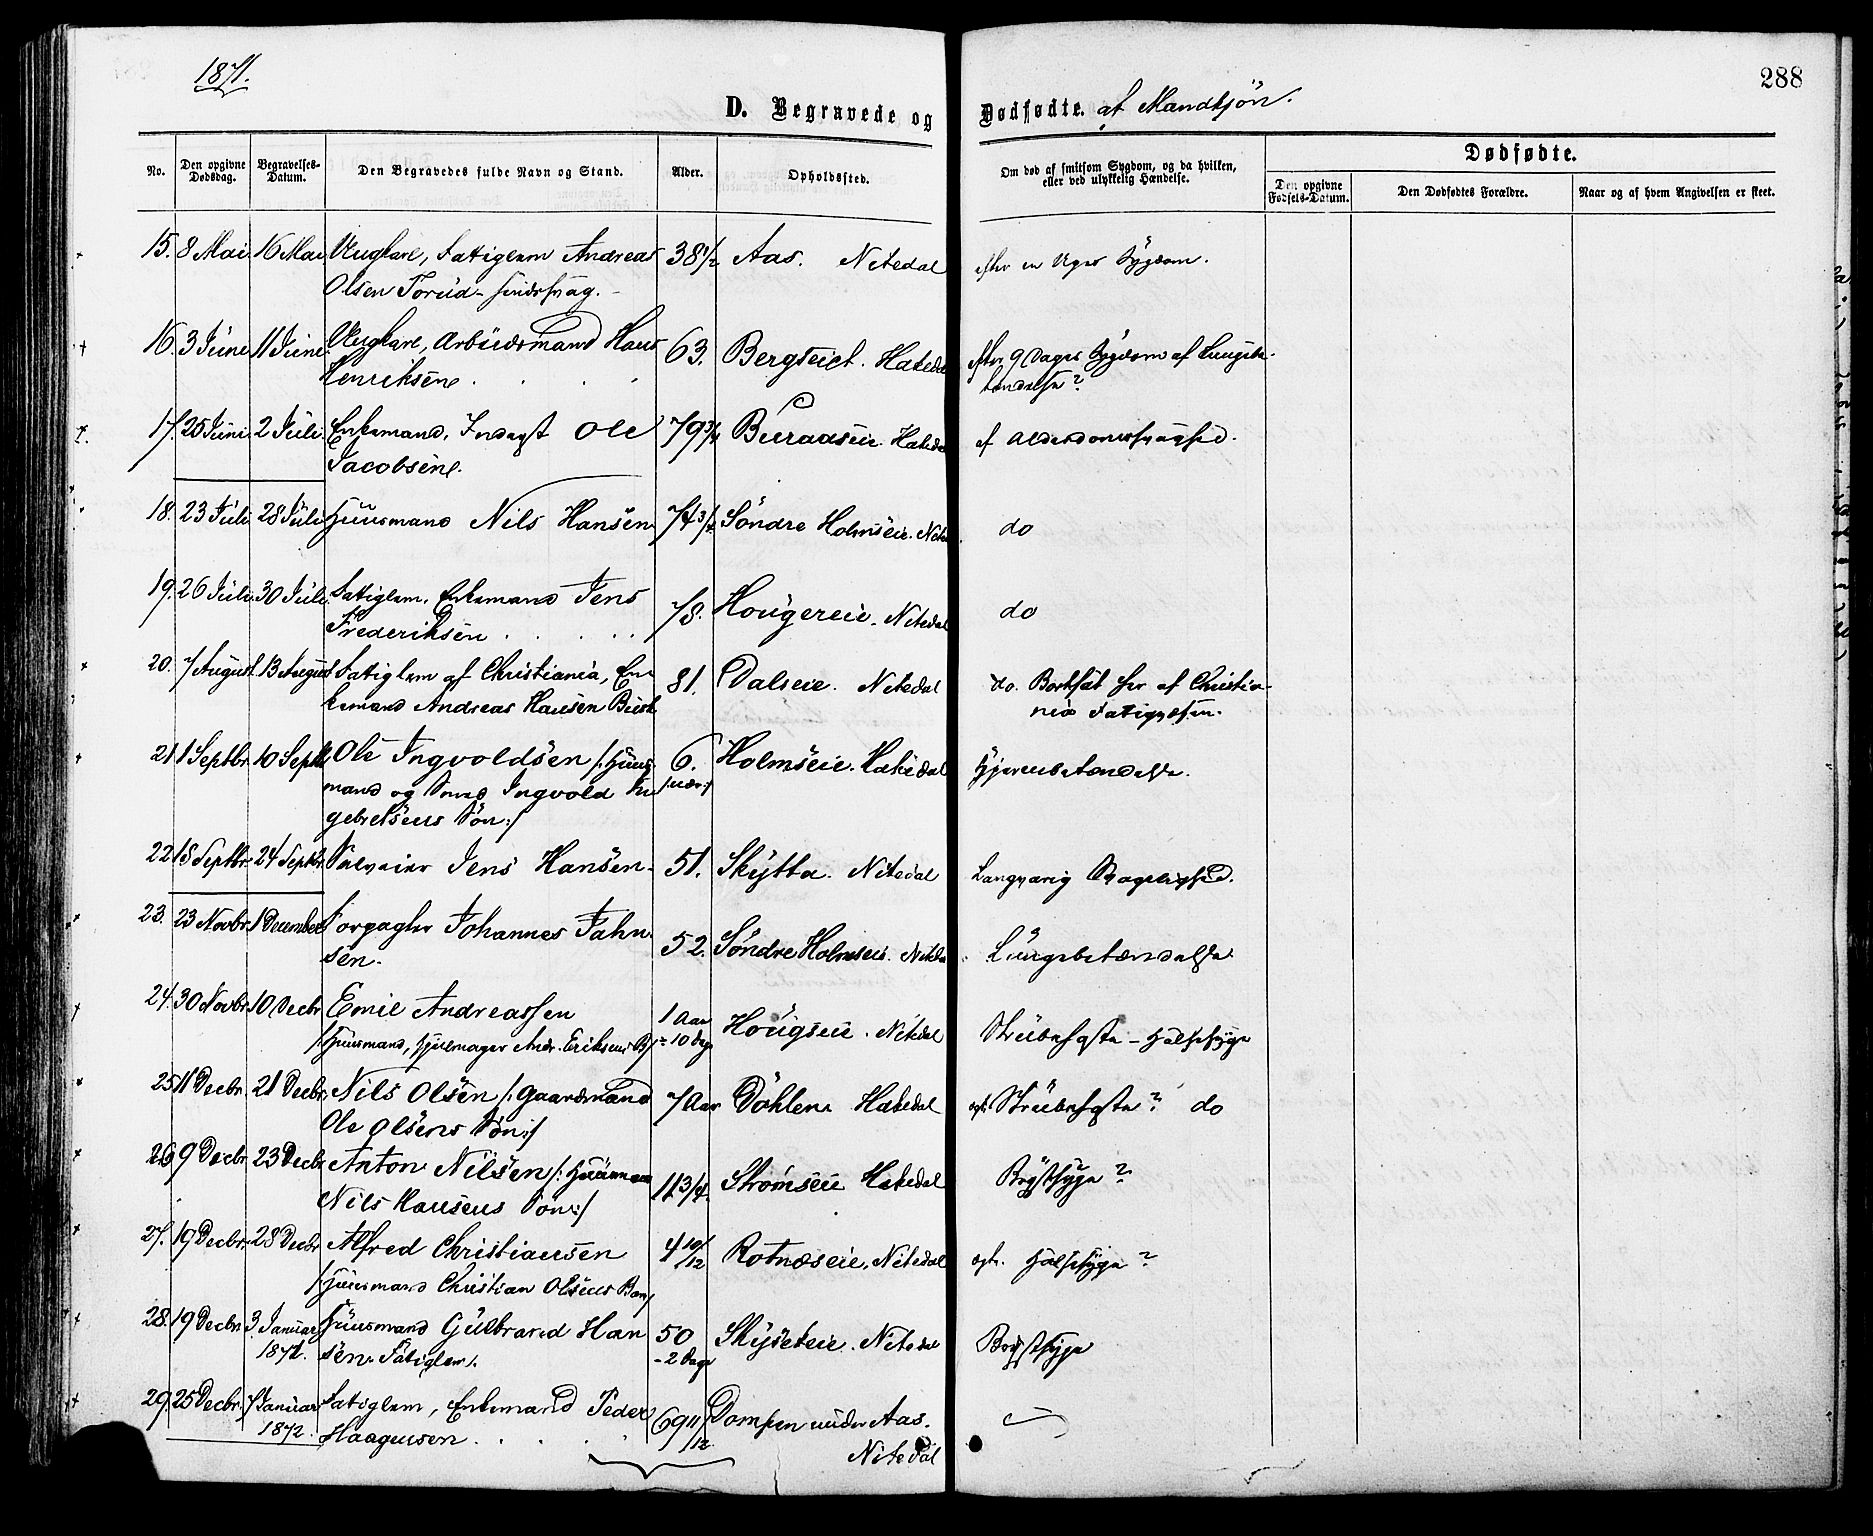 1871.
288
D. Begravede og Dødfødte. af Mandkjön.
No. Den opgivne Dødsdag. Begravelses-Datum. Den Begravedes fulde Navn og Stand. Alder. Opholdssted. Om død af smitsom Sygdom, og da hvilken, eller ved ulykkelig Hændelse. Dødfødte.
Den opgivne Fødsels-Datum. Den Dødfødtes Forældre. Naar og af hvem Angivelsen er skeet.
15. 8 Mai 16 Mai Ungkarl, Fattiglem Andreas 38 1/2 Aas. Nitedal efter en Uges Sygdom.
Olsen Torud - sindssvag.
16. 3 Juni 11 Juni Ungkarl, Arbeidsmand Hans 63. Bergseiet. Hakedal efter 9 Dages Sygdom af Lungebe-
Henriksen tændelse?
17. 25 Juni 2 Juli Enkemand, Inderst Ole 79 3/4 Buraaseie Hakedal af Alderdomssvaghed.
Jacobsen.
18. 23 Juli 28 Juli Huusmand Nils Hansen 74 3/4 Söndre Holmseie. Nited. do
19. 26 Juli 30 Juli Fattiglem, Enkemand Jens 78. Hougereie. Nitedal do
Frederiksen
20. 7 August 13 August Fattiglem af Christiania, En- 81. Dalseie. Nitedal do. Bortsat her af Christia-
kemand Andreas Hansen nia Fattigvæsen.
21 1 Septbr 10 Septb Ole Ingvoldsen /: Huus- 6. Holmseie. Hakedal Hjernebetændelse.
mand og Smed Ingvold In- /:nær:/
gebretsens Sön:/
22 18 Septbr. 24 Septbr. Selveier Jens Hansen 51. Skÿtta. Nitedal Langvarig Svagelighed.
23. 23 Novbr. 1 December Forpagter Johannes Jahn- 52. Söndre Holmseie. Nitedal Lungebetændelse
sen.
24. 30 Novbr. 10 Decbr Emil Andreassen 1 Aar Hougseie. Nitedal Strubehoste - Halssyge
/: Huusmand, Hjulmager Andr. Eriksens B:/ - 10 Dage
25 11 Decbr. 21 Decbr. Nils Olsen /: Gaardmand 7 Aar Döhlen Hakedal agt. Strubehoste? do
Ole Olsens Sön:/
26 9 Decbr 23 Decbr Anton Nilsen /: Huusmand 11 3/4 Strömseie Hakedal Brystsyge?
Nils Hansens Sön:/
27. 19 Decbr. 28 Decbr Alfred Christiansen 4 10/12 Rotnæseie, Nitedal agt. Halssyge?
/: Huusmand Christian Olsens Barn:/
28. 19 Decbr 3 Januar Huusmand Gulbrand Han- 50 Skyseteie. Nitedal Brystsyge
1872. sen. Fattiglem. - 2 Dage
29. 25 Decbr. 7 Januar Fattiglem, Enkemand Peder 69 11/12 Dampen under Aas.
1872. Haagensen Nitedal